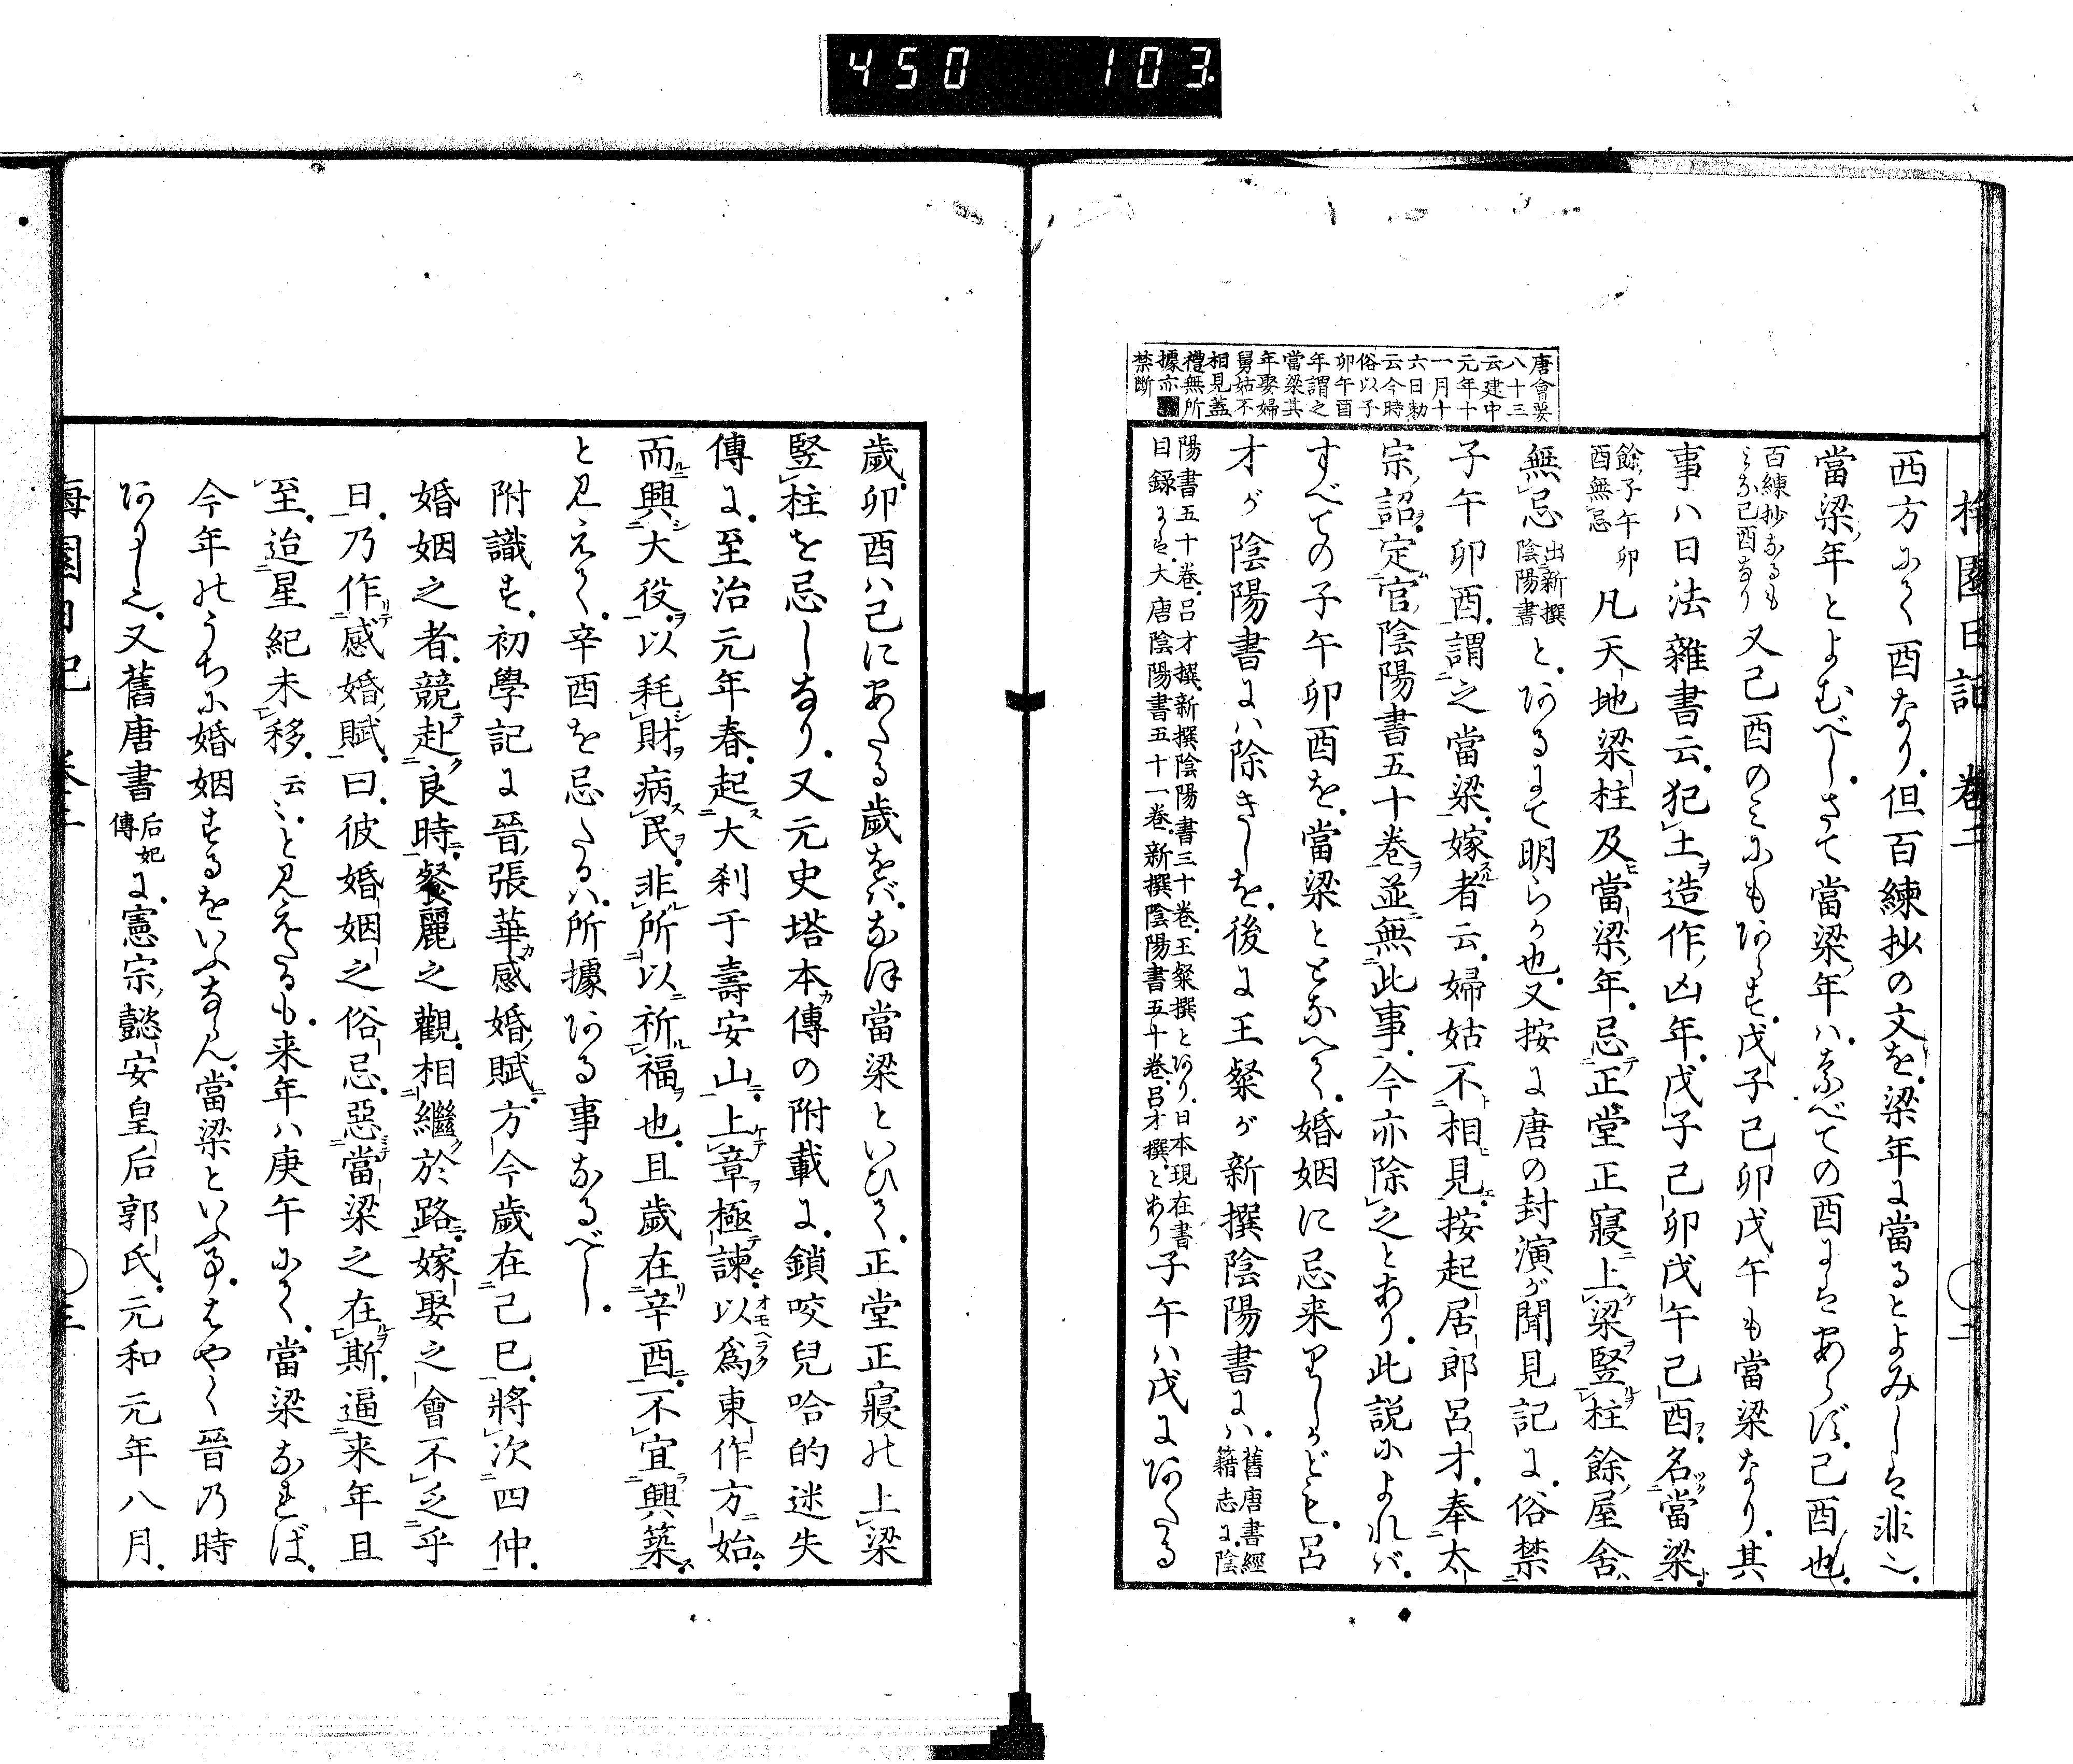 450 103
梅園日記 巻二 ○二
唐會要
八十三
云建中
元年十
一月十
六日勅
云今時
俗以子
卯午酉
年謂之
當梁其
年娶婦
舅姑不
相見蓋
禮無所
據亦■
禁斷
西方にて酉なり。但百練抄の文を。梁年に當るとよみしは非也。
當梁年とよむべし。さて當梁年ハ。なべての酉にはあらず。己酉也。
百練抄なるも
みな己酉なり
又己酉のみにもあらず。戊子己卯戊午も當梁なり。其
事ハ日法雜書云。犯土造作凶年。戊子己卯戊午己酉。名當梁。
餘子午卯
酉無忌
凡天地梁柱及當梁年。忌正堂正寢上梁竪柱。餘屋舍
無忌
出新撰
陰陽書
と。あるにて明らか也。又按に唐の封演が聞見記に。俗禁
子午卯酉。謂之當梁。嫁者云。婦姑不相見。按起居郎呂才。奉太
宗詔。定官陰陽書五十巻。並無此事。今亦除之とあり。此説によれバ。
すべての子午卯酉を。當梁ととなへて。婚姻に忌来りしかども。呂
才が陰陽書にハ除きしを。後に王粲が新撰陰陽書にハ。
舊唐書經
籍志に。陰
陽書五十巻。呂才撰。新撰陰陽書三十巻。王粲撰とあり。日本現在書
目録には。大唐陰陽書五十一巻。新撰陰陽書五十巻。呂才撰。とあり
子午ハ戊にあたる
歳。卯酉ハ己にあたる歳をバ。なほ當梁といひて。正堂正寢の上梁
竪柱を忌しなり。又元史塔本傳の附載に。鎖咬兒哈的迷失
傳に。至治元年春。起大刹于壽安山。上章極諫。以爲東作方始。
而興大役。以耗財病民。非所以祈福也。且歳在辛酉。不宜興築
と見えて。辛酉を忌たるハ。所據ある事なるべし。
附識す。初學記に晉張華感婚賦。方今歳在己巳。將次四仲。
婚姻之者。競赴良時。餐麗之觀。相繼於路。嫁娶之會不乏乎
日。乃作感婚賦。曰。彼婚姻之俗忌。惡當梁之在斯。逼来年且
至。迨星紀未移。云〻と見えたるも。来年ハ庚午にて。當梁なれば。
今年のうちに婚姻するをいふならん。當梁といふ事。はやく晉の時
ありし也。又舊唐書
后妃
傳
に。憲宗懿安皇后郭氏。元和元年八月。
梅園日記 巻二 ○三